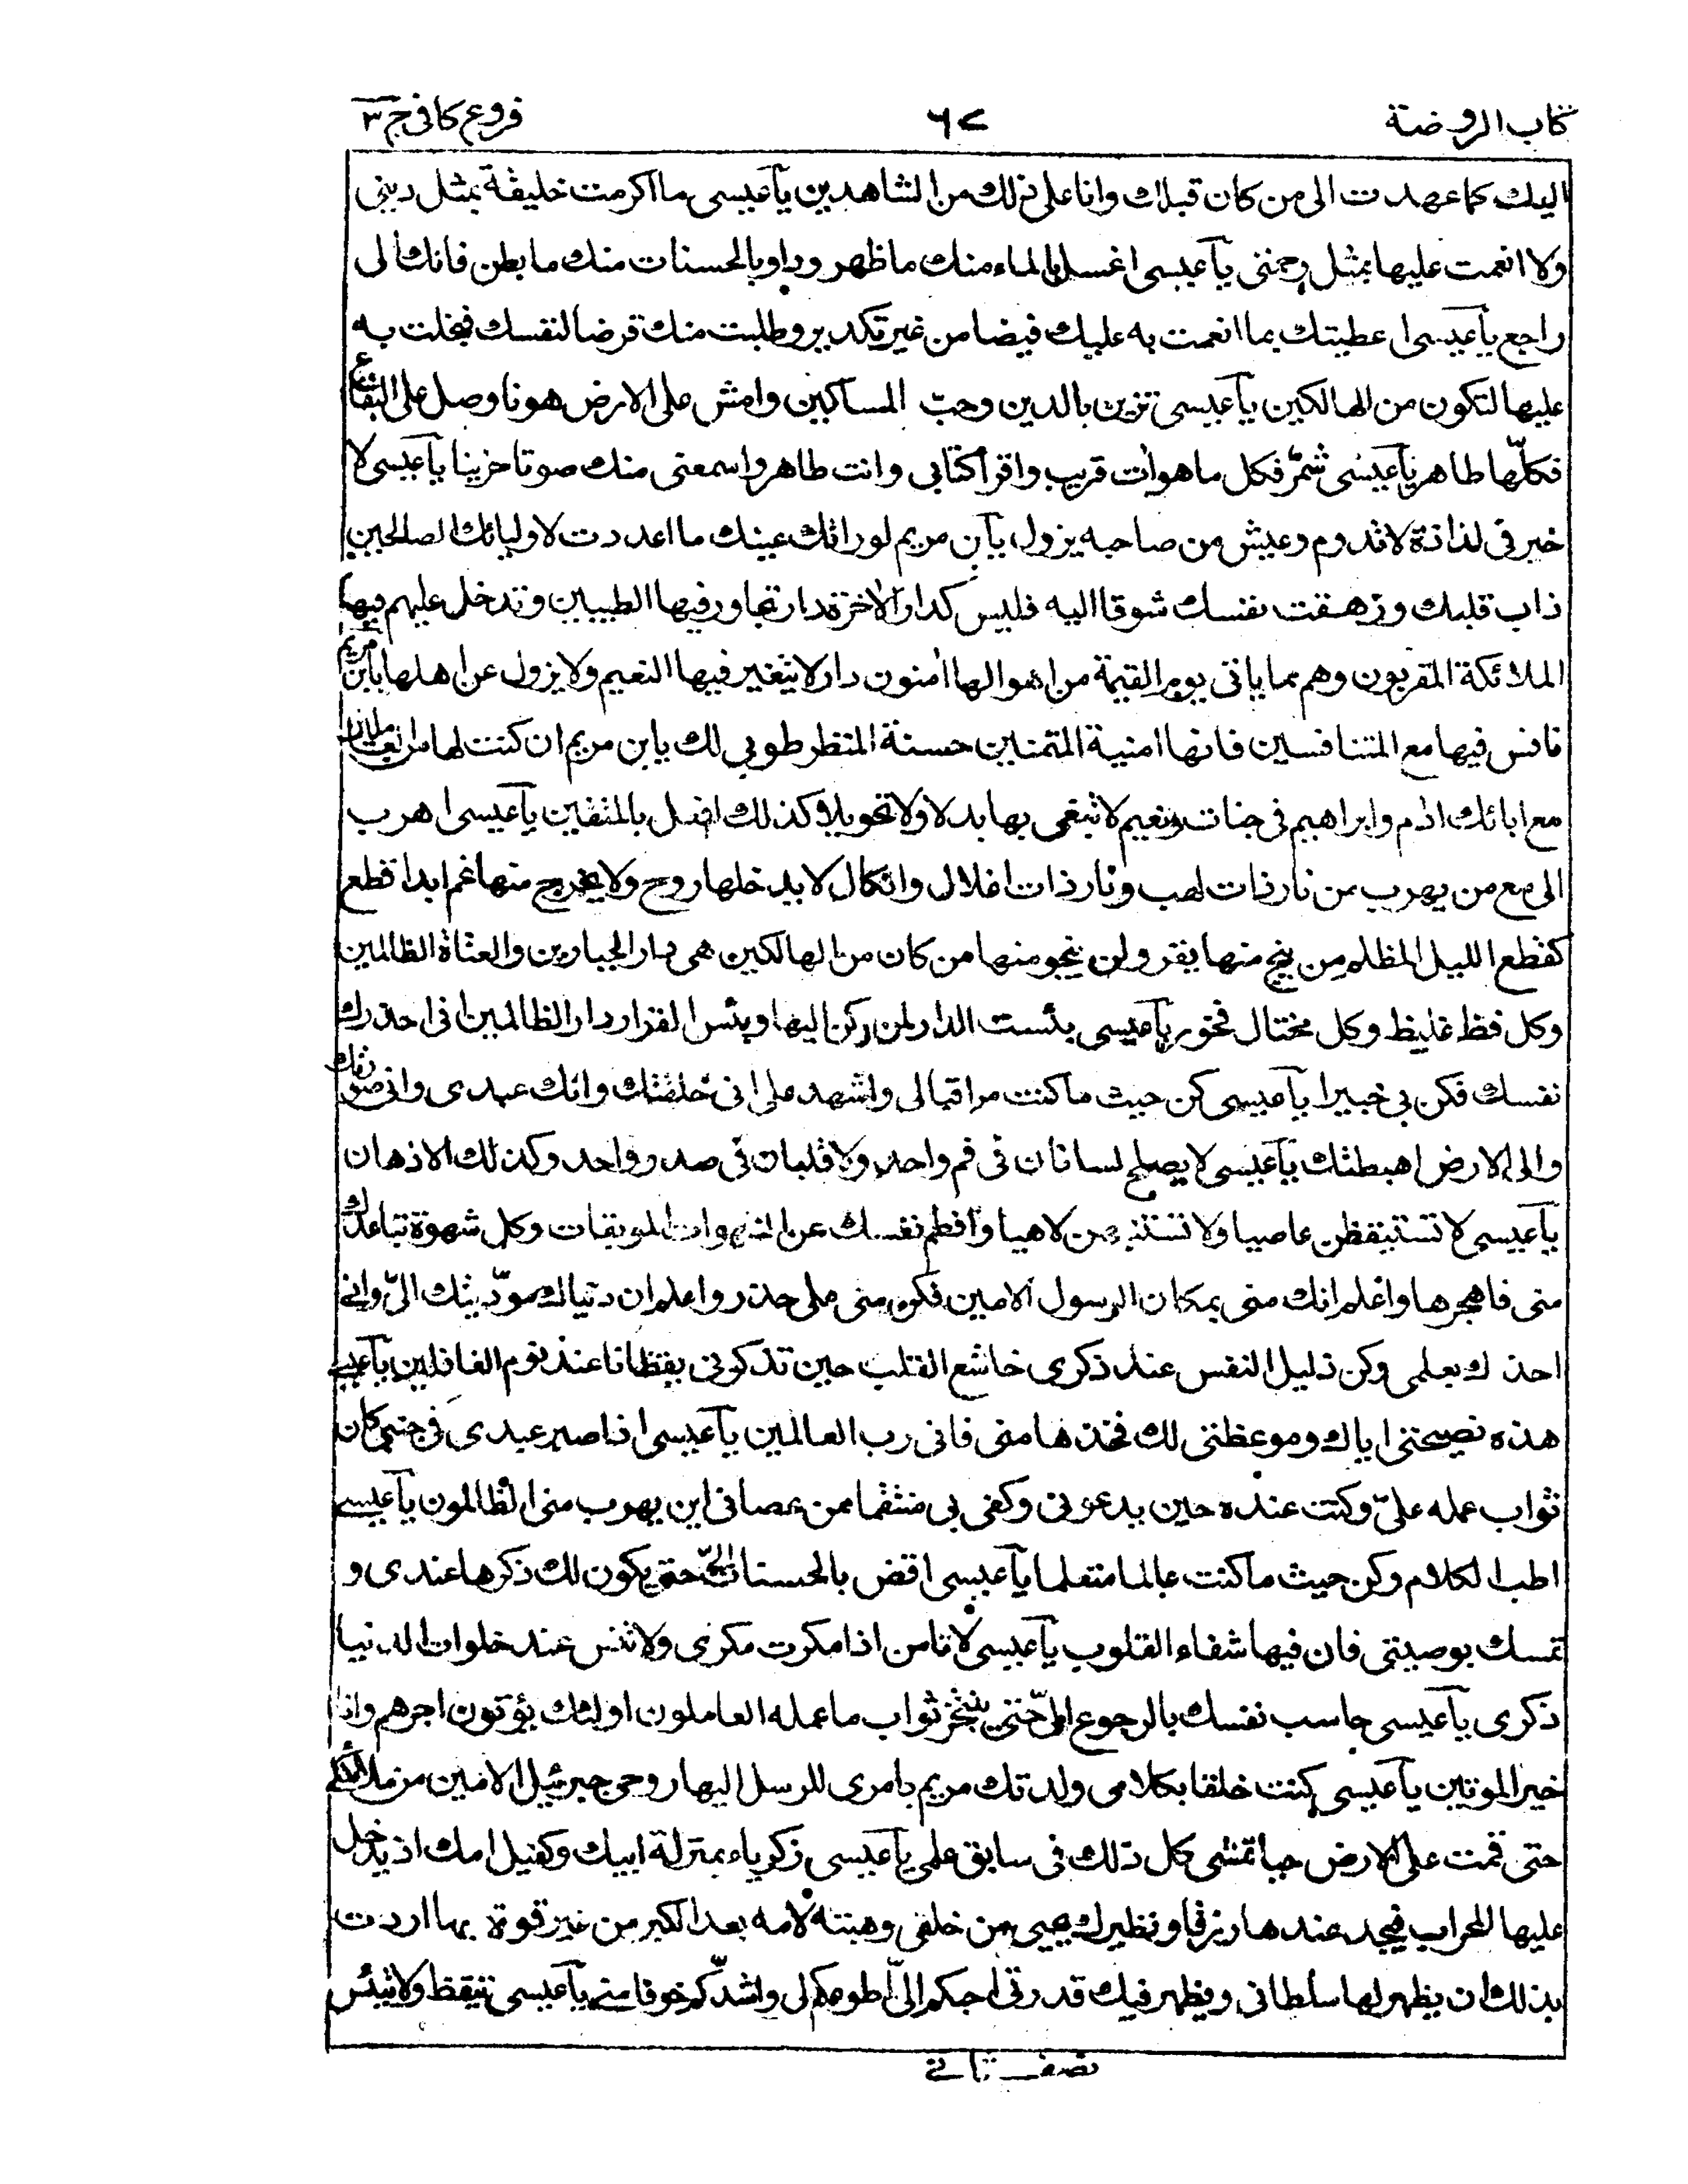 كتاب الروضة ٦٧ فروع كافى ج ٣
اليك كما عهدت الى من كان قبلك وانا على ذلك من الشاهدين يا عيسى ما اكرمت خليقة بمثل دينى
ولا انعمت عليها بمثل رحمتى يا عيسى اغسل بالماء منك ما ظهر وداو بالحسنات منك ما بطن فانك الى
راجع يا عيسى اعطيتك بما انعمت به عليك فيضا من غير تكدير وطلبت منك قرضا لنفسك فبخلت به
عليها لتكون من الهالكين يا عيسى تزين بالدين وحب المساكين وامش على الارض هونا وصل على البقاع
فكلها طاهر يا عيسى شمر فكل ما هو ات قريب واقرأ كتابى وانت طاهر واسمعنى منك صوتا حزينا يا عيسى لا
خير فى لذاذة لا تدوم وعيش من صاحبه يزول يا بن مريم لو رأتك عينك ما اعددت لاوليائك الصالحين
ذاب قلبك وزهقت نفسك شوقا اليه فليس كدار الاخرة دار تجاور فيها الطيبين وتدخل عليهم فيها
الملائكة المقربون وهم مما ياتى يوم القيمة من اهوالها امنون دار لا يتغير فيها النعيم ولا يزول عن اهلها يا بن مريم
نافس فيها مع المتنافسين فانها امنية المتمنين حسنة المنظر طوبى لك يا بن مريم ان كنت لها من العاملين
مع ابائك ادم وابراهيم فى جنات ونعيم لا تبغى بها بدلا ولا تحويلا وكذلك افعل بالمتقين يا عيسى اهرب
الى مع من يهرب من نار ذات لهب ونار ذات اغلال وانكال لا يدخلها روح ولا يخرج منها غم ابدا قطع
كقطع الليل المظلم من ينج منها يفز ولن ينجو منها من كان من الهالكين هى دار الجبارين والعتاة الظالمين
وكل فظ غليظ وكل مختال فخور يا عيسى بئست الدار لمن ركن اليها وبئس القرار دار الظالمين انى احذرك
نفسك فكن بى خبيرا يا عيسى كن حيث ما كنت مراقبا لى واشهد على انى خلقتك وانك عبدى وانى صورتك
والى الارض اهبطتك يا عيسى لا يصلح لسانان فى فم واحد ولا قلبان فى صدر واحد وكذلك الاذهان
يا عيسى لا تستيقظن عاصيا ولا تستنبهن لاهيا وافطم نفسك عن الشهوات الموبقات وكل شهوة تباعدك
منى فاهجرها واعلم انك منى بمكان الرسول الامين فكن منى على حذر واعلم ان دنياك مؤديتك الى وانى
احذك بعلمى وكن ذليل النفس عند ذكرى خاشع القلب حين تذكرنى يقظانا عند نوم الغافلين يا عيسى
هذه نصيحتى اياك وموعظتى لك فخذها منى فانى رب العالمين يا عيسى اذا صبر عبدى فى جنبى كان
ثواب عمله على وكنت عنده حين يدعونى وكفى بى منتقما ممن عصانى اين يهرب منى الظالمون يا عيسى
اطب الكلام وكن حيث ما كنت عالما متعلما يا عيسى اقض بالحسنات الى حتى يكون لك ذكرها عندى و
تمسك بوصيتى فان فيها شفاء القلوب يا عيسى لا تامن اذا مكرت مكرى ولا تنس عند خلوات الدنيا
ذكرى يا عيسى حاسب نفسك بالرجوع الى حتى ينتجز ثواب ما عمله العاملون اولئك يؤتون اجرهم وانا
خير الموتين يا عيسى كنت خلقا بكلامى ولدتك مريم بامرى المرسل اليها روحى جبرئيل الامين من ملائكتى
حتى قمت على الارض حيا تمشى كل ذلك فى سابق علمى يا عيسى زكرياء بمنزلة ابيك وكفيل امك اذ يدخل
عليها المحراب فيجد عندها رزقا ونظيرك يحيى من خلقى وهبته لامه بعد الكبر من غير قوة بها اردت
بذلك ان يظهر لها سلطانى ويظهر فيك قدرتى احبكم الى اطوعكم لى واشدكم خوفا منى يا عيسى تيقظ ولا تيئس
نصف ثانى